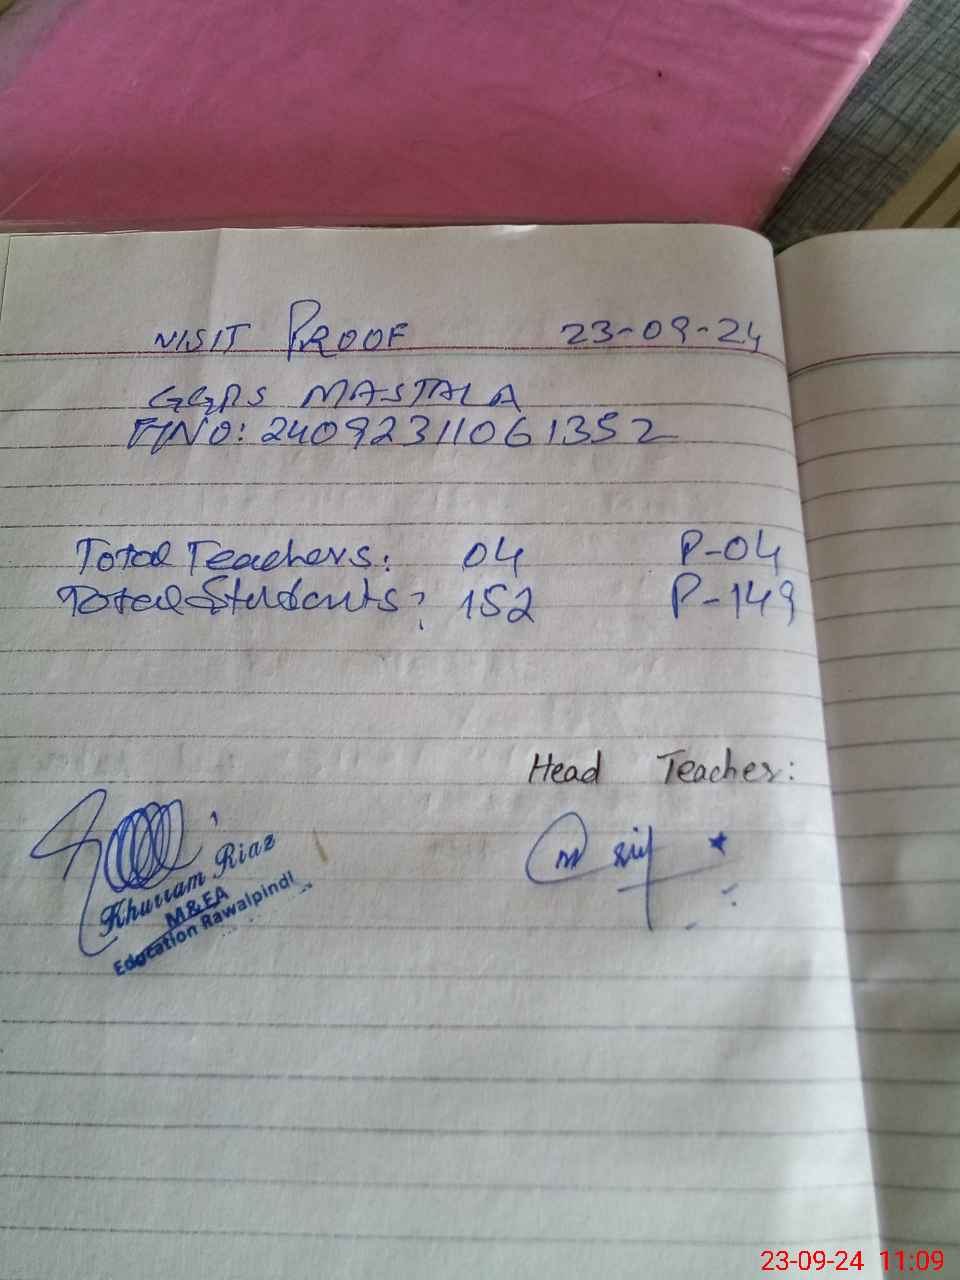 VISIT PROOF 23-09-24
GGPS MASTALA
F/NO: 24092311061352
Total Teachers: 04 P-04
Total Students: 152 P-149
Head Teacher:
Khurram Riaz
M&EA
Education Rawalpindi
23-09-24 11:09